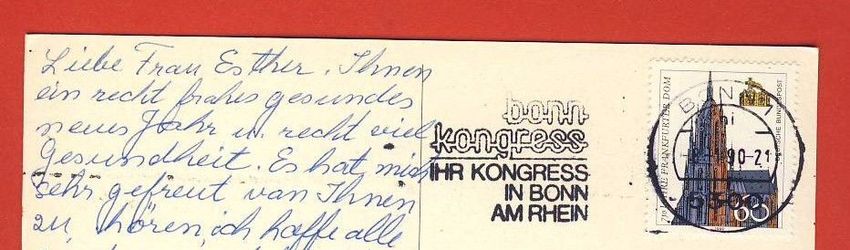 Liebe Frau Esther. Ihnen
ein recht frohes gesundes
neues Jahr u. recht viel
Gesundheit. Es hat mich
sehr gefreut von Ihnen
zu hören, ich hoffe alle
bonn
kongress
IHR KONGRESS
IN BONN
AM RHEIN
BONN 1
90-21
5300
JAHRE FRANKFURTER DOM
DEUTSCHE BUNDESPOST
60